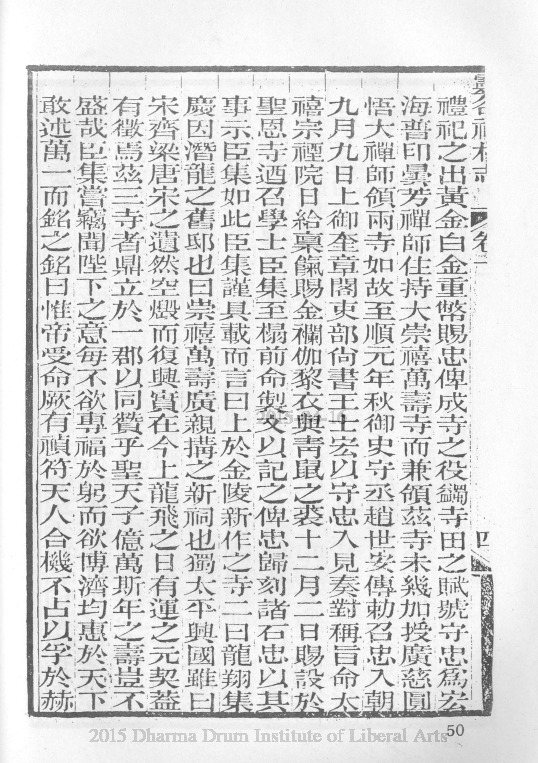 禮祀之出黃金白金重幣賜忠俾成寺之役蠲寺田之賦號守忠爲宏
海普印曇芳禪師住持大崇禧萬壽寺而兼領茲寺未幾加授廣慈圓
悟大禪師領兩寺如故至順元年秋御史守丞趙世安傳勅召忠入朝
九月九日上御奎章閣吏部尙書王士宏以守忠入見奏對稱旨命太
禧宗禋院日給稟餼賜金襴伽黎衣與靑鼠之裘十二月二日賜設於
聖恩寺迺召學士臣集至榻前命製文以記之俾忠歸刻諸石忠以其
事示臣集如此臣集謹具載而言曰上於金陵新作之寺二曰龍翔集
慶因潛龍之舊邸也曰崇禧萬壽廣親搆之新祠也獨太平興國雖曰
宋齊梁唐宋之遺然空燬而復興實在今上龍飛之日有運之元契葢
有徵焉茲三寺者鼎立於一郡以同贊乎聖天子億萬斯年之壽豈不
盛哉臣集嘗竊聞陛下之意每不欲專福於躬而欲博濟均惠於天下
敢述萬一而銘之銘曰惟帝受命厥有禎符天人合機不占以孚於赫
卷一
四
50
2015 Dharma Drum Institute of Liberal Arts